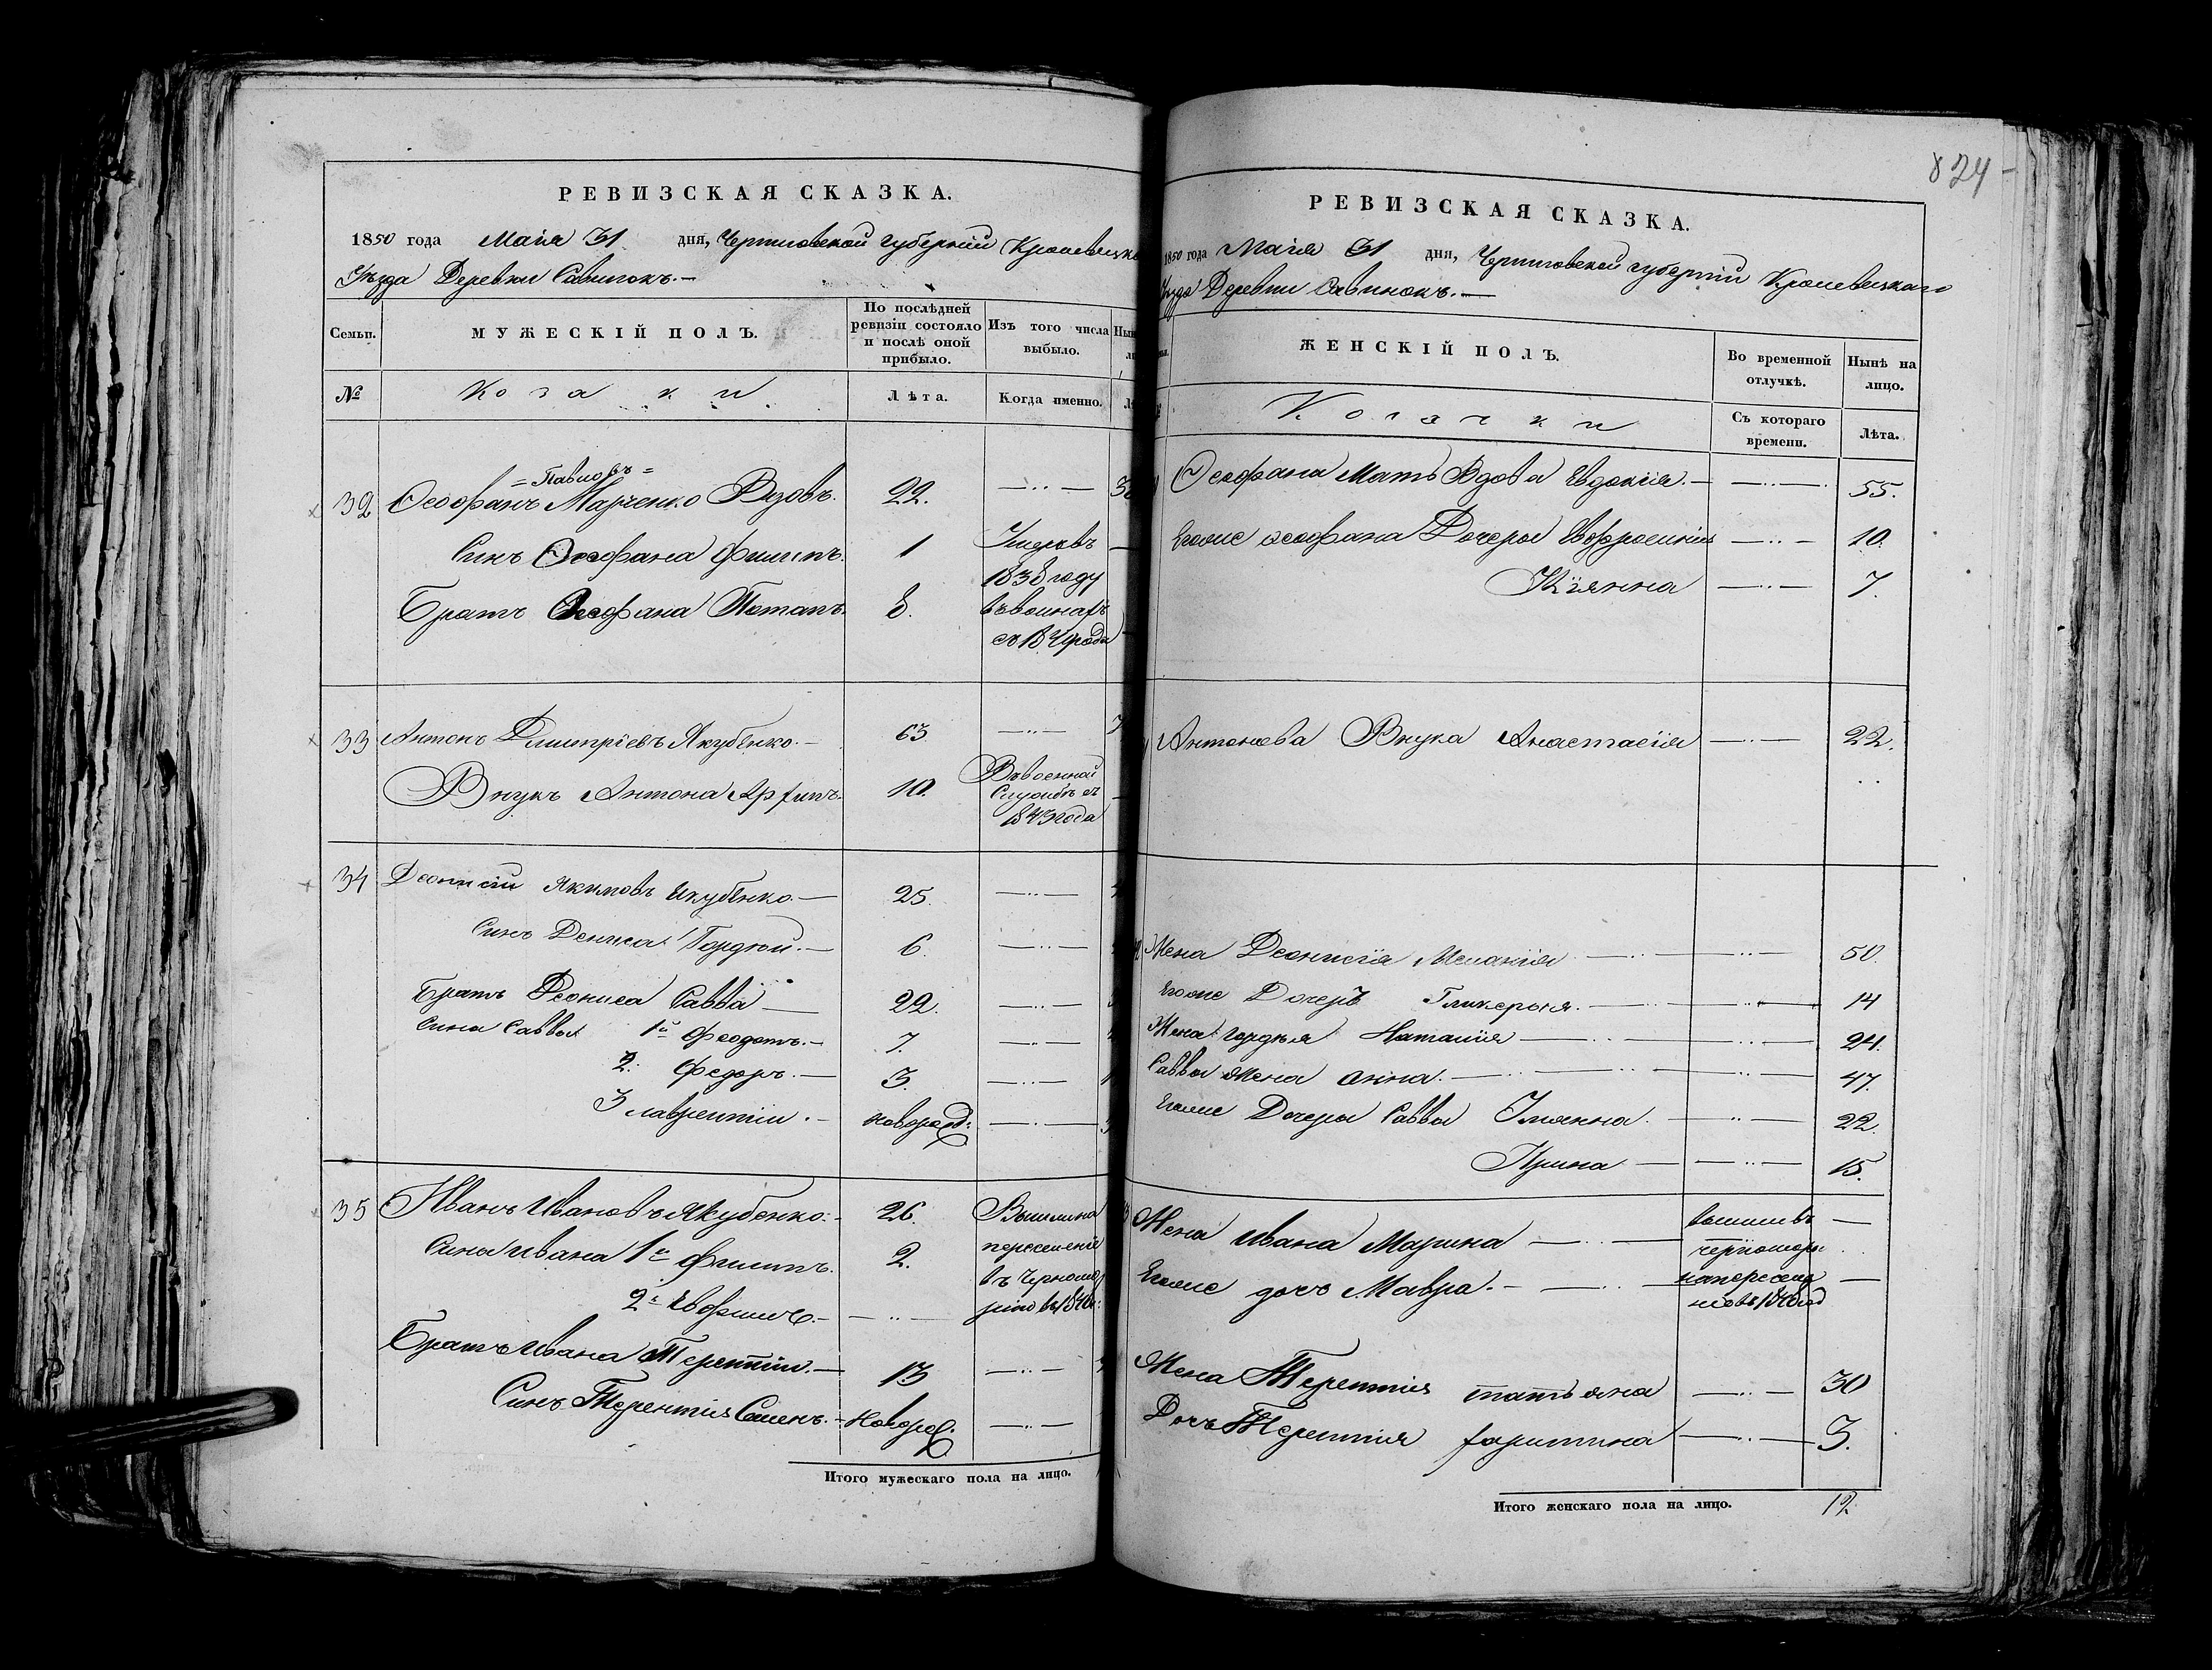 РЕВИЗСКАЯ СКАЗКА.
1850 года Маія 31 дня, Черниговской губерніи Кролевецка
Уѣзда Деревни Савинокъ.
Семьи.
МУЖЕСКІЙ ПОЛЪ.
По послѣдней
ревизіи состояло
и послѣ оной
прибыло.
Изъ того числа
выбыло.
№
Козаки
Лѣта.
Когда именно.
= Павловъ =
32 Феофанъ Марченко 22.
Синъ Феофана Филипъ. 1 Умеръ въ
1838 году
Братъ Феофана Потапъ. 8.
33 Антонъ Дмитріевъ Якубенко. 63
Внукъ Антона Архипъ. 10. Въ военной
Службѣ съ
1843 года
34 Деонисій Якимовъ Якубенко. 25.
Синъ Дениса Гордѣй. 6.
Братъ Деониса Савва 22.
Сина Саввы 1й Феодотъ. 7.
2. Федоръ. 3.
3 Лаврентій. новорожд:
35 Иванъ Ивановъ Якубенко. 26. Вышли на
переселеніе
Сина Ивана 1й Филипъ. 2.
въ Черномо
2й Евфимъ.
рію въ 1848:
Братъ Ивана Терентій. 13
Синъ Терентія Семенъ. Новорож.
Итого мужескаго пола на лицо.
824
РЕВИЗСКАЯ СКАЗКА.
1850 года Маія 31 дня, Черниговской губерніи Кролевецкаго
Уѣзда Деревни Савинокъ.
ЖЕНСКІЙ ПОЛЪ.
Во временной
отлучкѣ.
Нынѣ на
лицо.
Козачки
Съ котораго
времени.
Лѣта.
Феофана Мать Вдова Евдокія. 55.
Егоже Феофана Дочери Евфросинія 10.
7.
Антонова Внука Анастасія 22.
Жена Деонисія Меланія 50.
Егоже Дочерь Гликерыя. 14
Жена Гордѣя Наталія 24.
Саввы Жена Анна. 47.
Егоже Дочеры Саввы Уліянна. 22.
Ирина 15.
Жена Ивана Марина
Егоже дочь Мавра.
Жена Терентія Татьяна 30
Дочь Терентія Харитина 3.
Итого женскаго пола на лицо. 12.